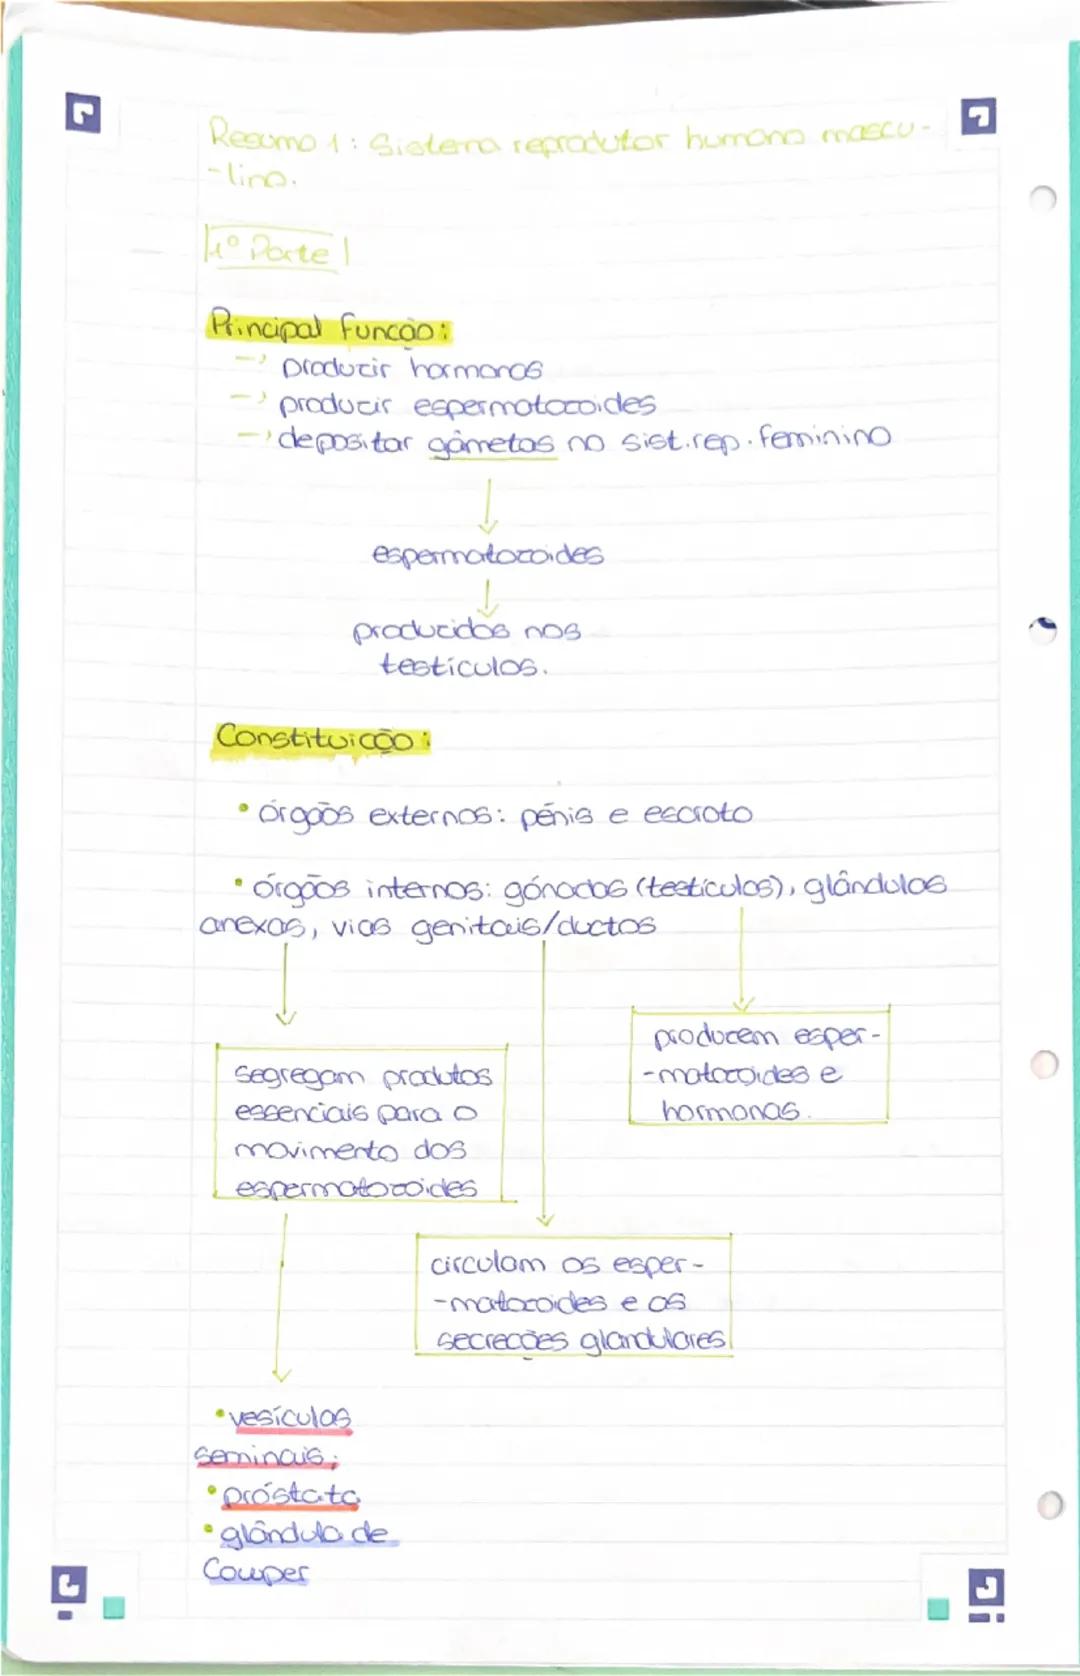 Resumo 1: Sistema reprodutor humano mascu-
-lino.
1º Parte
Principal função:
produzir hormonas
produzir espermatozoides
depositar gâmetas no sist.rep. feminino
espermatozoides
produzidos nos
testículos.
Constituição:
• órgãos externos: pénis e escroto
• órgãos internos: gónadas (testículos), glândulas
anexas, vias genitais/ductos
produzem esper-
-matozoides e
hormonas.
segregam produtos
essenciais para o
movimento dos
espermatozoides
circulam os esper-
-matozoides e as
secreções glandulares
• vesículas
seminais;
• próstata
• glândula de
Cowper